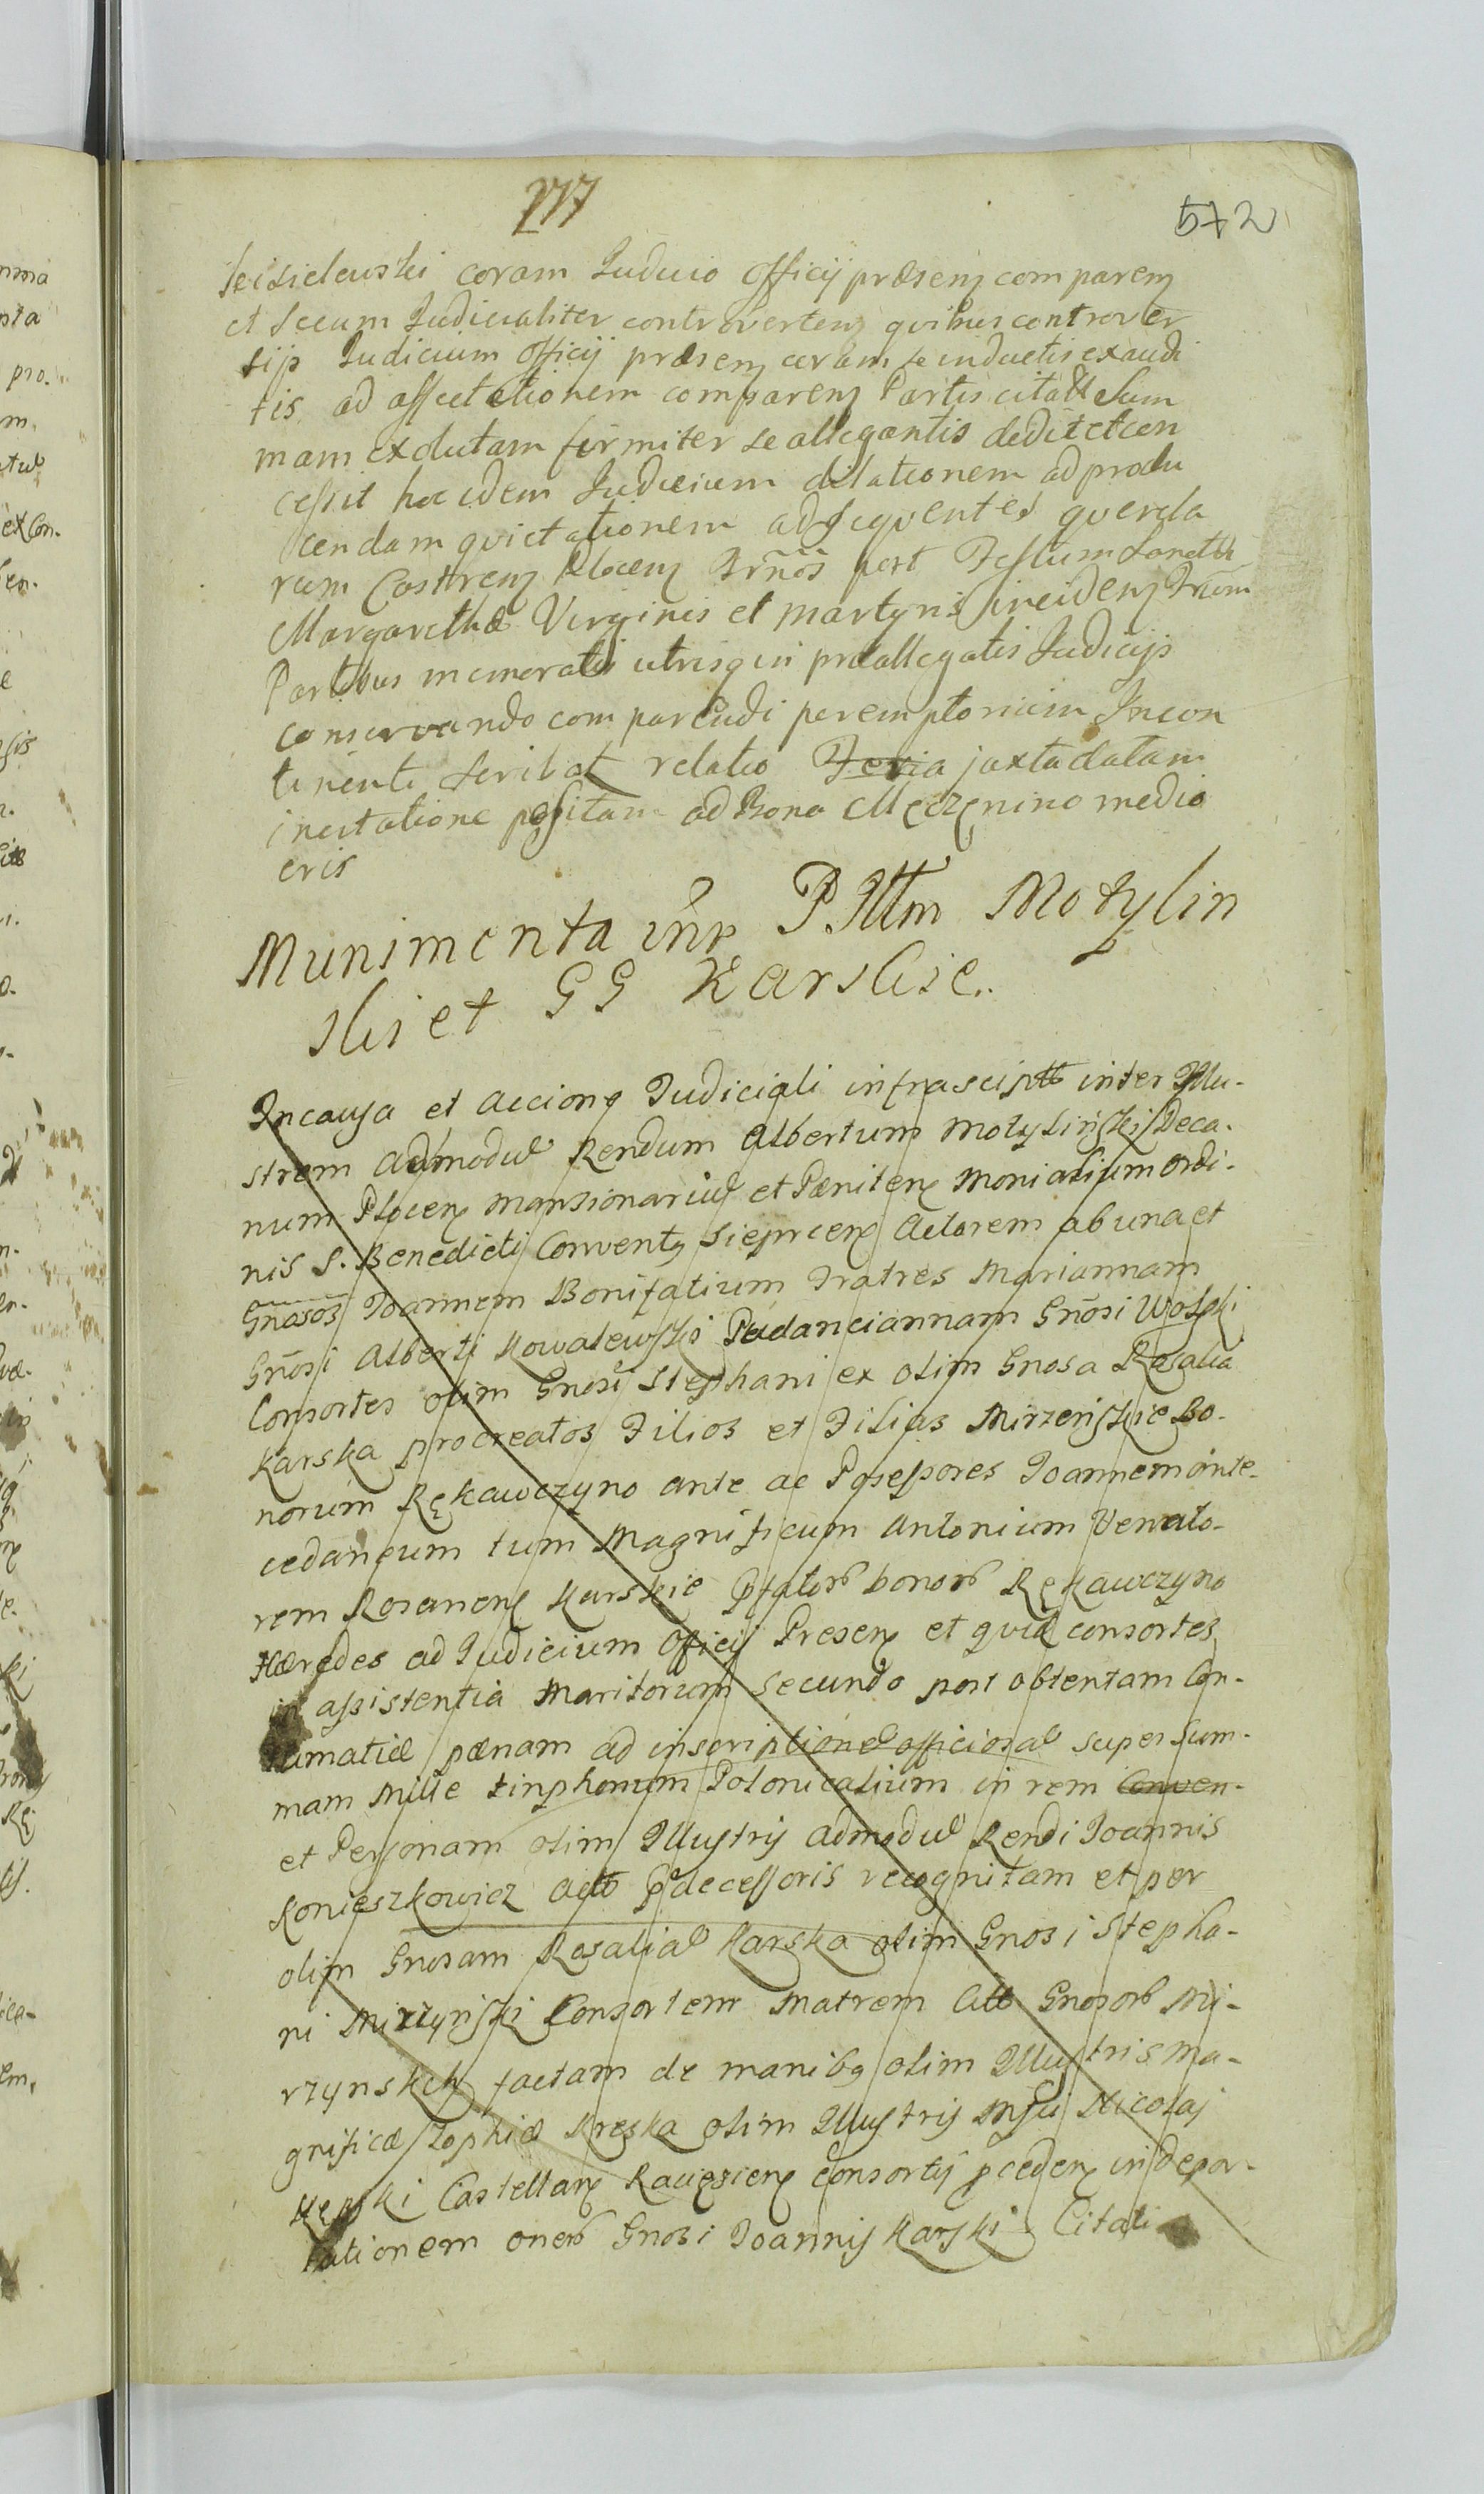 277
572
coram Judicio Officij præsenz comparenz
et secum Judicialiter controvertenz quibus controver
sijs Judicium Officij præsenz coram se inductis exaudi
tis ad affectationem comparenz Partis citattæ Sum
mam exolutam firmiter se allegantis dedit et con
cessit hoc idem Judicium dilationem ad produ
cendam quietationem ad sequentes querela
rum Castrenz Plocenz Trnōs post Festum Sanctæ
Margarethæ Virginis et Martyris incidenz Trūm
Partibus memoratis utrisq in præallegatis Judicijs
conservando comparendi peremptorium Incon
tinenti scribat relatio Feria juxta datam
in citatione positam ad Bona Męczenino medio
cris
Munimenta inr P. Illtm Motylin
ski et GG Karskie.
In causa et accione Judiciali infrascriptta inter Illu-
strem admodū Rendum Albertum Motyliński Deca-
num Plocenz Mansionariū et Pæniten Monialium Ordi-
nis S. Benedicti Conventq Sieprcenz Actorem ab una et
Gnosos Joannem Bonifatium Fratres Mariannam
Gnosi Alberti Kowalewski Pudanciannam Gnosi Wolski
Consortes olim Gnosi Stephani ex olim Gnosa Rosalia
Karska procreatos Filios et Filias Mirzenskie Bo-
norum Rękawczyno ante ac Possessores Joannem ante-
cedaneum tum Magnificum Antonium Venato-
rem Rosanenz Karskie Pfator bonor Rękawczyno
Hæredes ad Judicium Officij Presenz et quid consortes
in assistentia Maritorum secundo post obtentam Con-
tumatiæ pænam ad inscriptionē officiosā super Sum-
mam Mille tinphonum Polonicalium in rem Conven-
et Personam olim Illustris admodū Rendi Joannis
Konieszkowicz actō Prædecessoris recognitam et per
olim Gnosam Rosaliā Karska olim Gnosi Stepha-
ni Mirzynski Consortem Matrem Citt Gnosor Mi-
rzynskch factam de manibq olim Illustris Ma-
gnificæ Zophiæ Kręska olim Illustris Mfci Nicolaj
Kępski Castellanz Raciąsienz Consortis pcedenz in depor-
tationem oner Gnosi Joannis Karski Citati